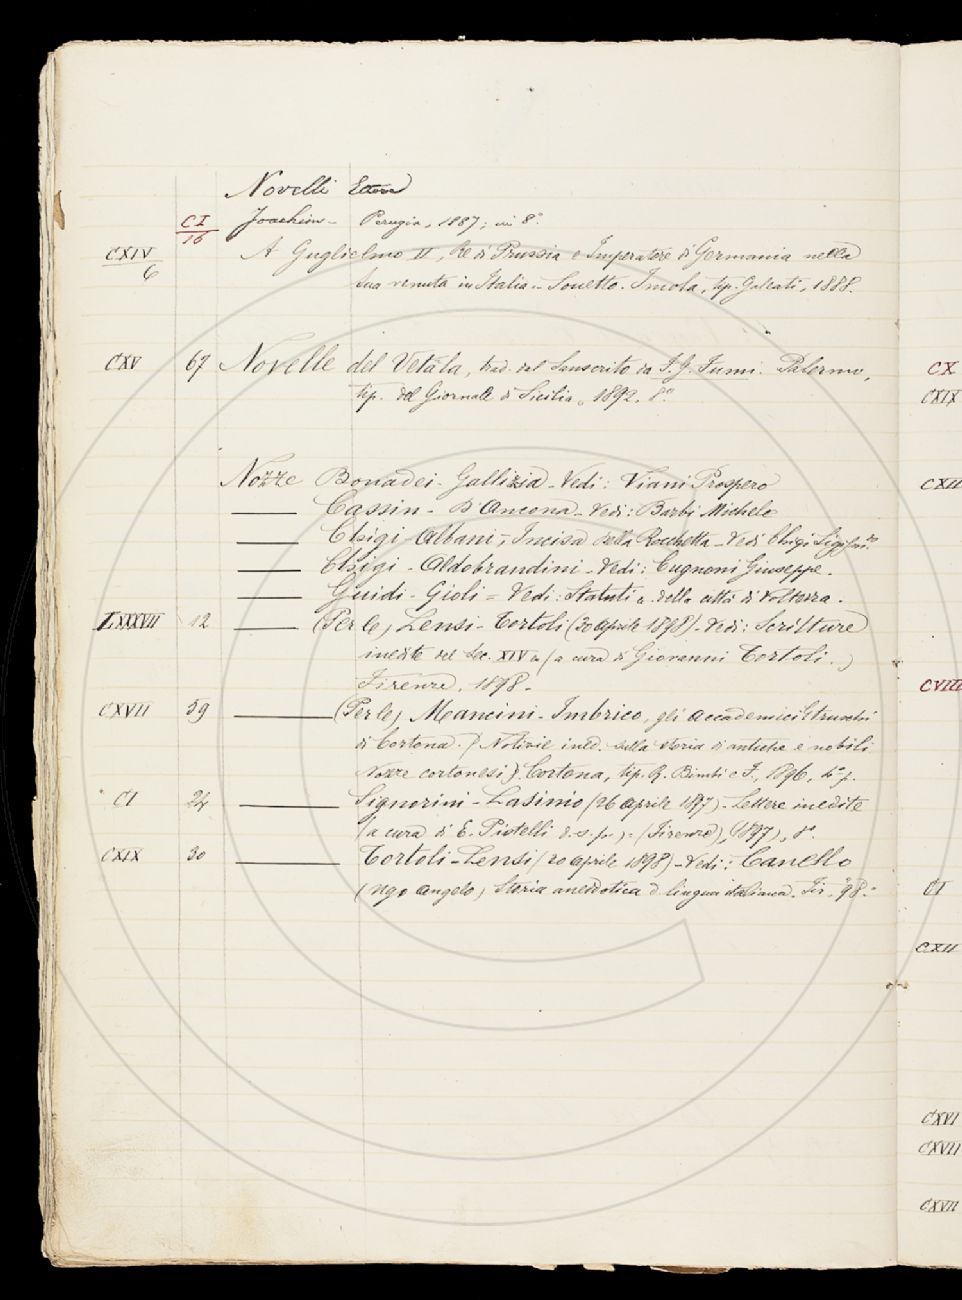 Novelli Ettore
CI/16 Joachim - Perugia, 1887; in 8°
CXIV/6 A Guglielmo II, Re di Prussia e Imperatore di Germania nella
sua venuta in Italia - Sonetto. Imola, tip. Galeati, 1888.
CXV 67 Novelle del Vetâla, trad. dal Sanscrito da F. G. Fumi. Palermo,
tip. del Giornale di Sicilia, 1892. 8°
Nozze Bonadei - Gallizia - Vedi: Viani Prospero
— Cassin - D'Ancona - Vedi: Barbi Michele
— Chigi - Albani, - Incisa della Rocchetta - Vedi Chigi
— Chigi - Aldobrandini - Vedi: Cugnoni Giuseppe.
— Guidi - Gioli = Vedi: Statuti della città di Volterra.
LXXXVII 12 — (Per le) Lensi - Tortoli (30 aprile 1898) - Vedi: Scritture
inedite del Sec. XIV (a cura di Giovanni Tortoli.)
Firenze, 1898.
CXVII 59 — (Per le) Mancini - Imbrico, gli accademici Etruschi
di Cortona. (Notizie ined. sulla storia di antiche e nobili
Nozze cortonesi). Cortona, tip. R. Bimbi e F., 1896, 4° p.
CI 24 — Signorini - Lasinio (26 aprile 1897) - Lettere inedite
(a cura di E. Pistelli d. s. p.) - (Firenze), (1897), 8°
CXIX 30 — Tortoli - Lensi (20 aprile 1898) - Vedi: Canello
(Ugo Angelo) Storia aneddotica d. lingua italiana. Fir. '98.
CX
CXIX
CXII
CVIII
CI
CXII
CXVI
CXVII
CXVII